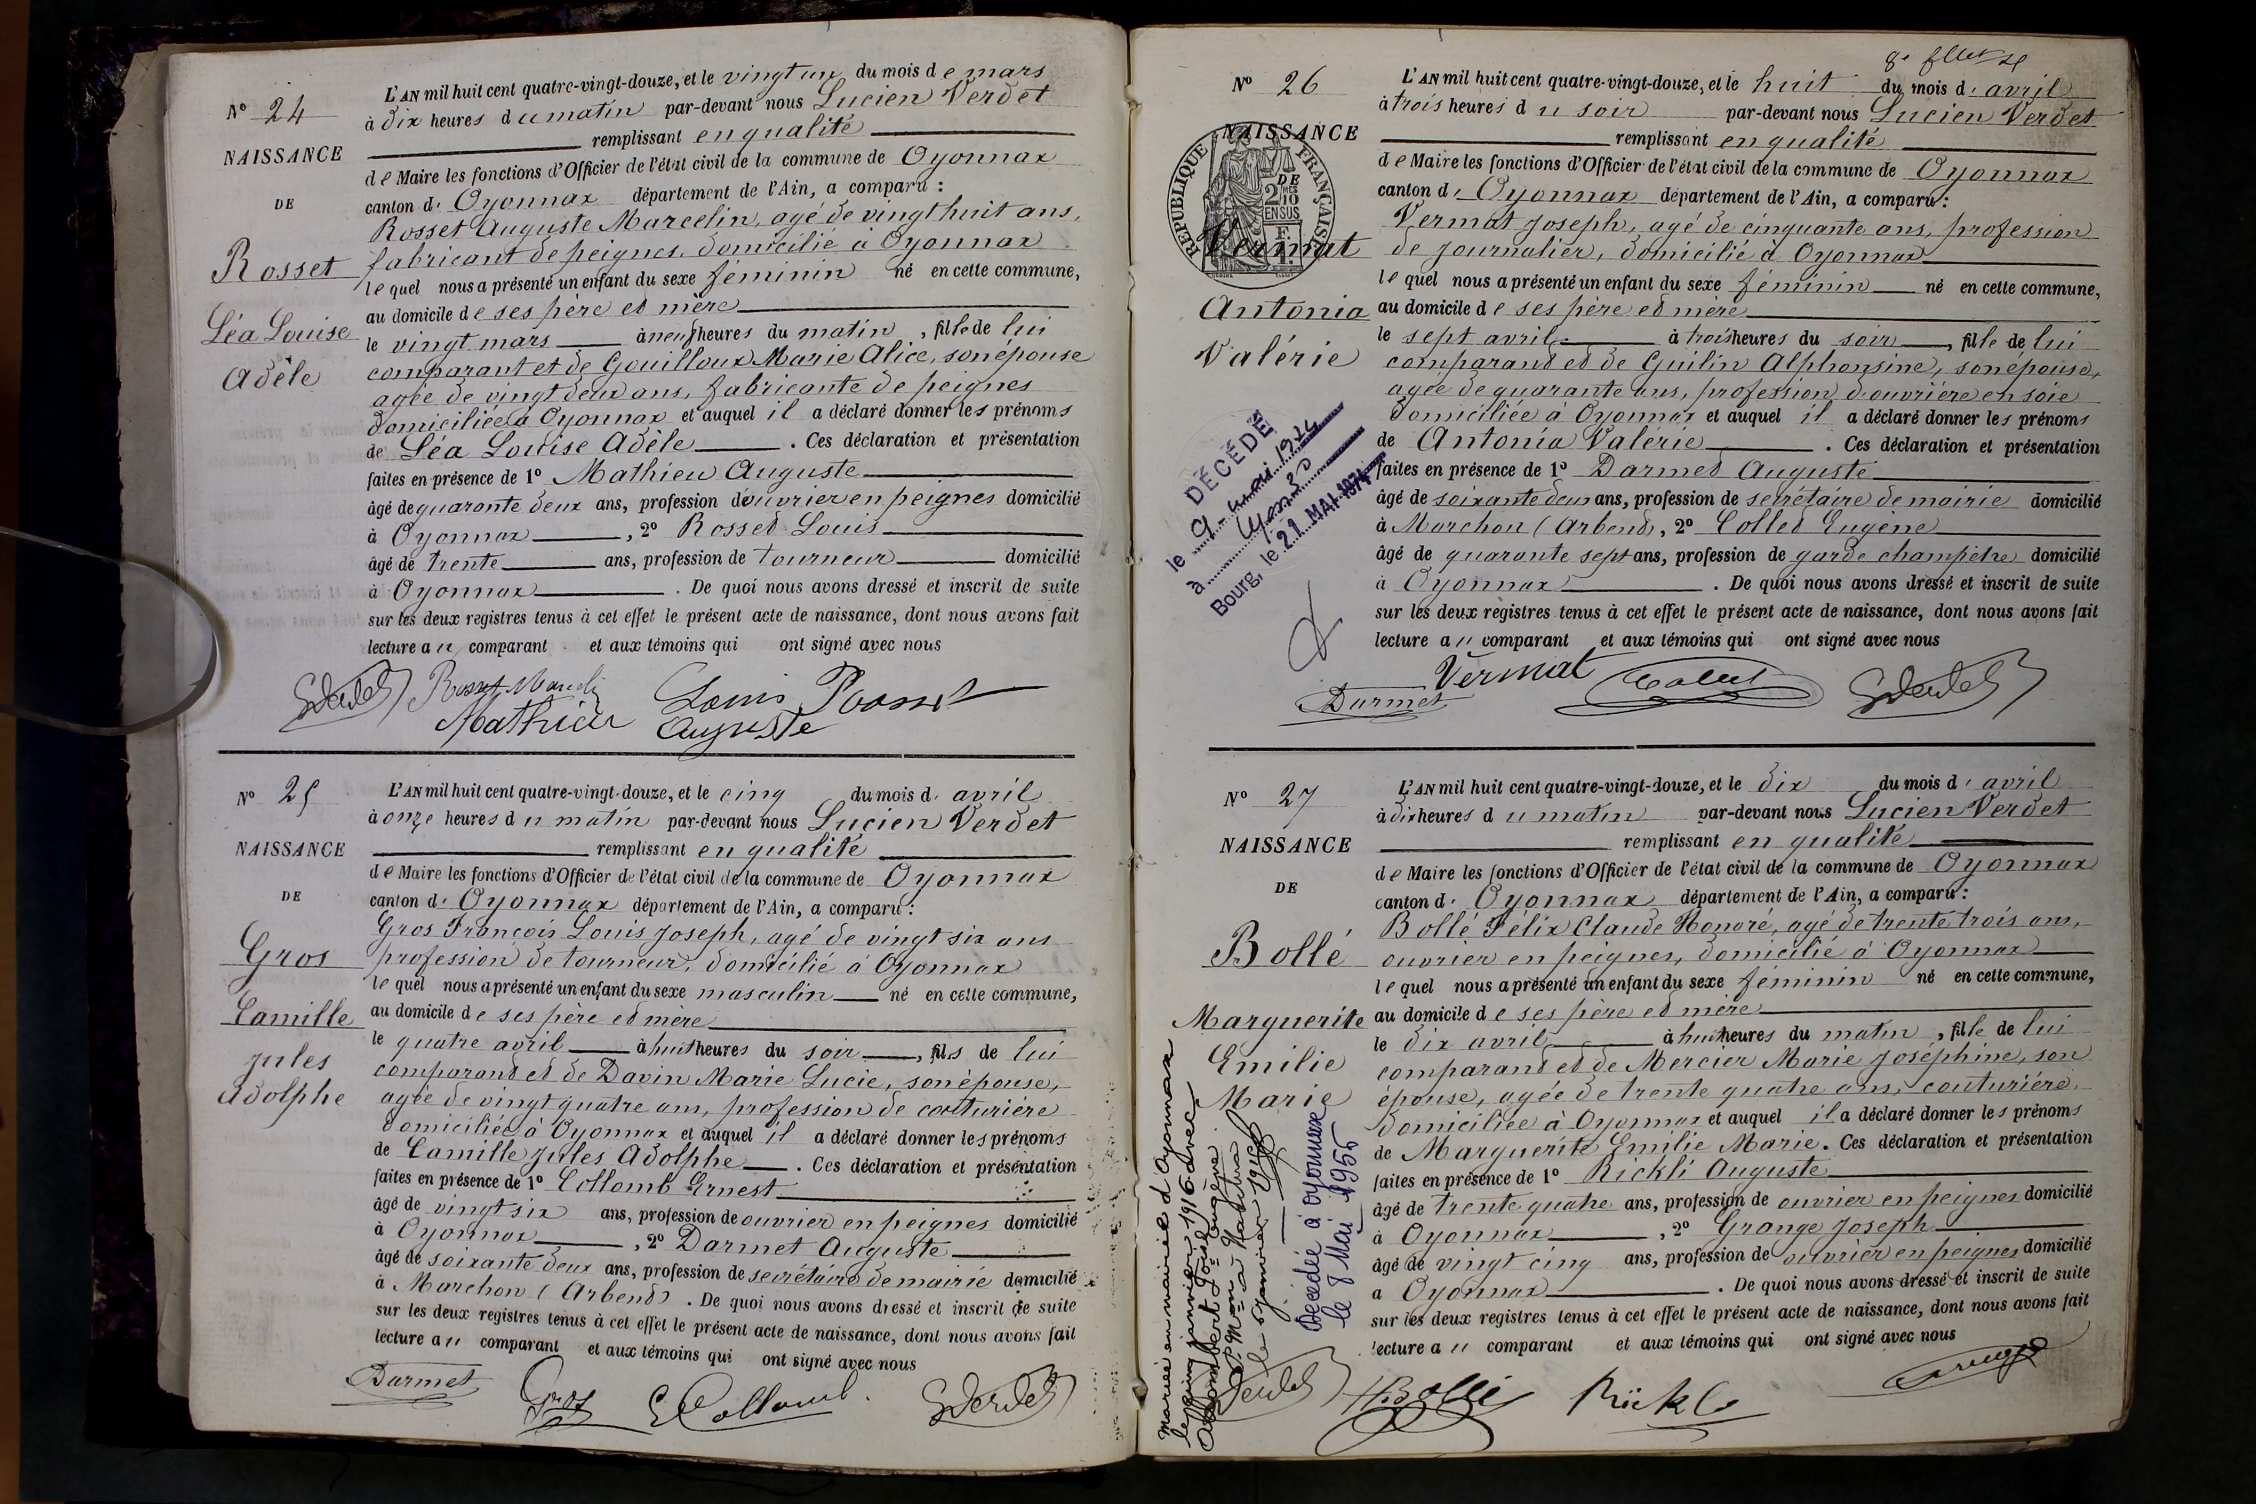 N° 24
NAISSANCE
DE
Rosset
Léa Louise
Adèle
L'AN mil huit cent quatre-vingt-douze, et le vingt un du mois de mars
à dix heures du matin par-devant nous Lucien Verdet
remplissant en qualité
de Maire les fonctions d'Officier de l'état civil de la commune de Oyonnax
canton d' Oyonnax département de l'Ain, a comparu :
Rosset Auguste Marcelin, agé de vingt huit ans,
fabricant de peignes, domicilié à Oyonnax
lequel nous a présenté un enfant du sexe féminin né en cette commune,
au domicile de ses père et mère
le vingt mars à neuf heures du matin, fille de lui
comparant et de Gouilloux Marie Alice, son épouse
agée de vingt deux ans, fabricante de peignes
domiciliée à Oyonnax et auquel il a déclaré donner les prénoms
de Léa Louise Adèle. Ces déclaration et présentation
faites en présence de 1° Mathieu Auguste
âgé de quarante deux ans, profession d'ouvrier en peignes domicilié
à Oyonnax, 2° Rosset Louis
âgé de trente ans, profession de tourneur domicilié
à Oyonnax. De quoi nous avons dressé et inscrit de suite
sur les deux registres tenus à cet effet le présent acte de naissance, dont nous avons fait
lecture au comparant et aux témoins qui ont signé avec nous
Rosset Marcelin
Louis Rosset
Mathieu Auguste
N° 25
NAISSANCE
DE
Gros
Camille
Jules
Adolphe
L'AN mil huit cent quatre-vingt-douze, et le cinq du mois d' avril
à onze heures du matin par-devant nous Lucien Verdet
remplissant en qualité
de Maire les fonctions d'Officier de l'état civil de la commune de Oyonnax
canton d' Oyonnax département de l'Ain, a comparu :
Gros François Louis Joseph, agé de vingt six ans
profession de tourneur, domicilié à Oyonnax
lequel nous a présenté un enfant du sexe masculin né en cette commune,
au domicile de ses père et mère
le quatre avril à huit heures du soir, fils de lui
comparant et de Davin Marie Lucie, son épouse,
agée de vingt quatre ans, profession de couturière
domiciliée à Oyonnax et auquel il a déclaré donner les prénoms
de Camille Jules Adolphe. Ces déclaration et présentation
faites en présence de 1° Collomb Ernest
âgé de vingt six ans, profession de ouvrier en peignes domicilié
à Oyonnax, 2° Darmet Auguste
âgé de soixante deux ans, profession de secrétaire de mairie domicilié
à Marchon (Arbent). De quoi nous avons dressé et inscrit de suite
sur les deux registres tenus à cet effet le présent acte de naissance, dont nous avons fait
lecture au comparant et aux témoins qui ont signé avec nous
Darmet
Gros
E Collomb
N° 26
NAISSANCE
DE
Vermat
Antonia
Valérie
RÉPUBLIQUE FRANÇAISE
2 10
EN SUS
DÉCÉDÉ
le 9 mai 1974
à Lyon 3°
Bourg, le 21 MAI 1974
L'AN mil huit cent quatre-vingt-douze, et le huit du mois d' avril
à trois heures du soir par-devant nous Lucien Verdet
remplissant en qualité
de Maire les fonctions d'Officier de l'état civil de la commune de Oyonnax
canton d' Oyonnax département de l'Ain, a comparu :
Vermat Joseph, agé de cinquante ans, profession
de journalier, domicilié à Oyonnax
lequel nous a présenté un enfant du sexe féminin né en cette commune,
au domicile de ses père et mère
le sept avril à trois heures du soir, fille de lui
comparant et de Guilin Alphonsine, son épouse,
agée de quarante ans, profession d'ouvrière en soie
domiciliée à Oyonnax et auquel il a déclaré donner les prénoms
de Antonia Valérie. Ces déclaration et présentation
faites en présence de 1° Darmet Auguste
âgé de soixante deux ans, profession de secrétaire de mairie domicilié
à Marchon (Arbent), 2° Collet Eugène
âgé de quarante sept ans, profession de garde champêtre domicilié
à Oyonnax. De quoi nous avons dressé et inscrit de suite
sur les deux registres tenus à cet effet le présent acte de naissance, dont nous avons fait
lecture au comparant et aux témoins qui ont signé avec nous
Vermat
Darmet
N° 27
NAISSANCE
DE
Bollé
Marguerite
Emilie
Marie
Mariée en mairie d'Oyonnax
le janvier 1916 avec
le janvier 1916
Décédée à Oyonnax
le 8 Mai 1955
L'AN mil huit cent quatre-vingt-douze, et le dix du mois d' avril
à dix heures du matin par-devant nous Lucien Verdet
remplissant en qualité
de Maire les fonctions d'Officier de l'état civil de la commune de Oyonnax
canton d' Oyonnax département de l'Ain, a comparu :
Bollé Félix Claude Honoré, agé de trente trois ans,
ouvrier en peignes, domicilié à Oyonnax
lequel nous a présenté un enfant du sexe féminin né en cette commune,
au domicile de ses père et mère
le dix avril à huit heures du matin, fille de lui
comparant et de Mercier Marie Joséphine, son
épouse, agée de trente quatre ans, couturière,
domiciliée à Oyonnax et auquel il a déclaré donner les prénoms
de Marguerite Emilie Marie. Ces déclaration et présentation
faites en présence de 1° Rickli Auguste
âgé de trente quatre ans, profession de ouvrier en peignes domicilié
à Oyonnax, 2° Grange Joseph
âgé de vingt cinq ans, profession de ouvrier en peignes domicilié
à Oyonnax. De quoi nous avons dressé et inscrit de suite
sur les deux registres tenus à cet effet le présent acte de naissance, dont nous avons fait
lecture au comparant et aux témoins qui ont signé avec nous